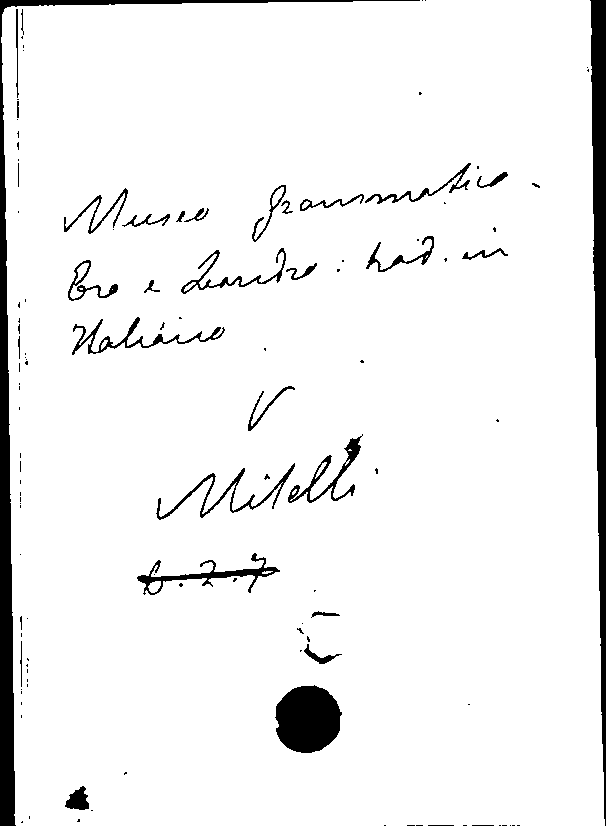 Museo grammatico.
Ero e Leandro: trad. in
Italiano
V
Mitelli
6.2.7